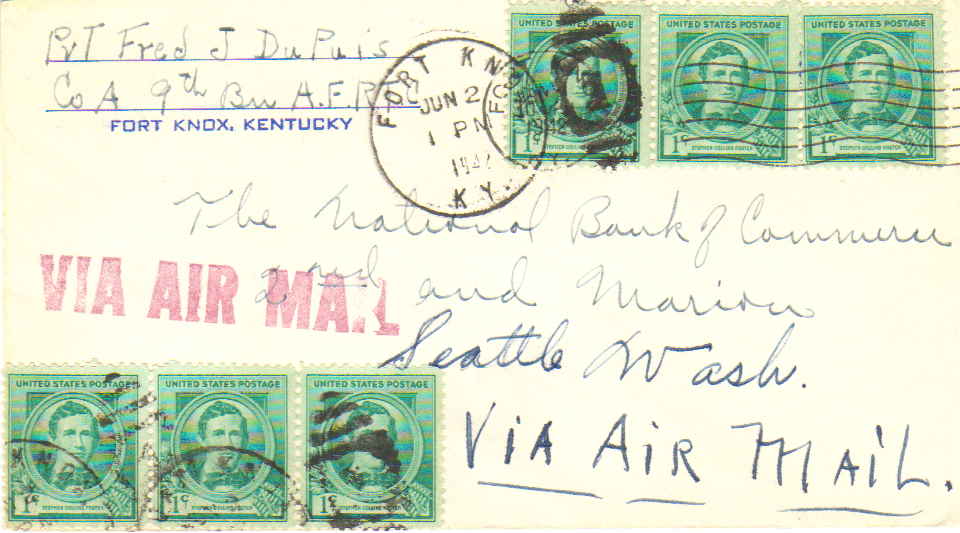 Pvt Fred J DuPuis
Co A 9th Bn A.F.R.T.C
FORT KNOX, KENTUCKY
FORT KNOX
JUN 2
1 PM
1942
KY.
UNITED STATES POSTAGE
1¢
STEPHEN COLLINS FOSTER
UNITED STATES POSTAGE
1¢
STEPHEN COLLINS FOSTER
UNITED STATES POSTAGE
1¢
STEPHEN COLLINS FOSTER
The National Bank of Commerce
2nd and Marion
Seattle Wash.
VIA AIR MAIL
VIA AIR MAIL.
UNITED STATES POSTAGE
1¢
STEPHEN COLLINS FOSTER
UNITED STATES POSTAGE
1¢
STEPHEN COLLINS FOSTER
UNITED STATES POSTAGE
1¢
STEPHEN COLLINS FOSTER